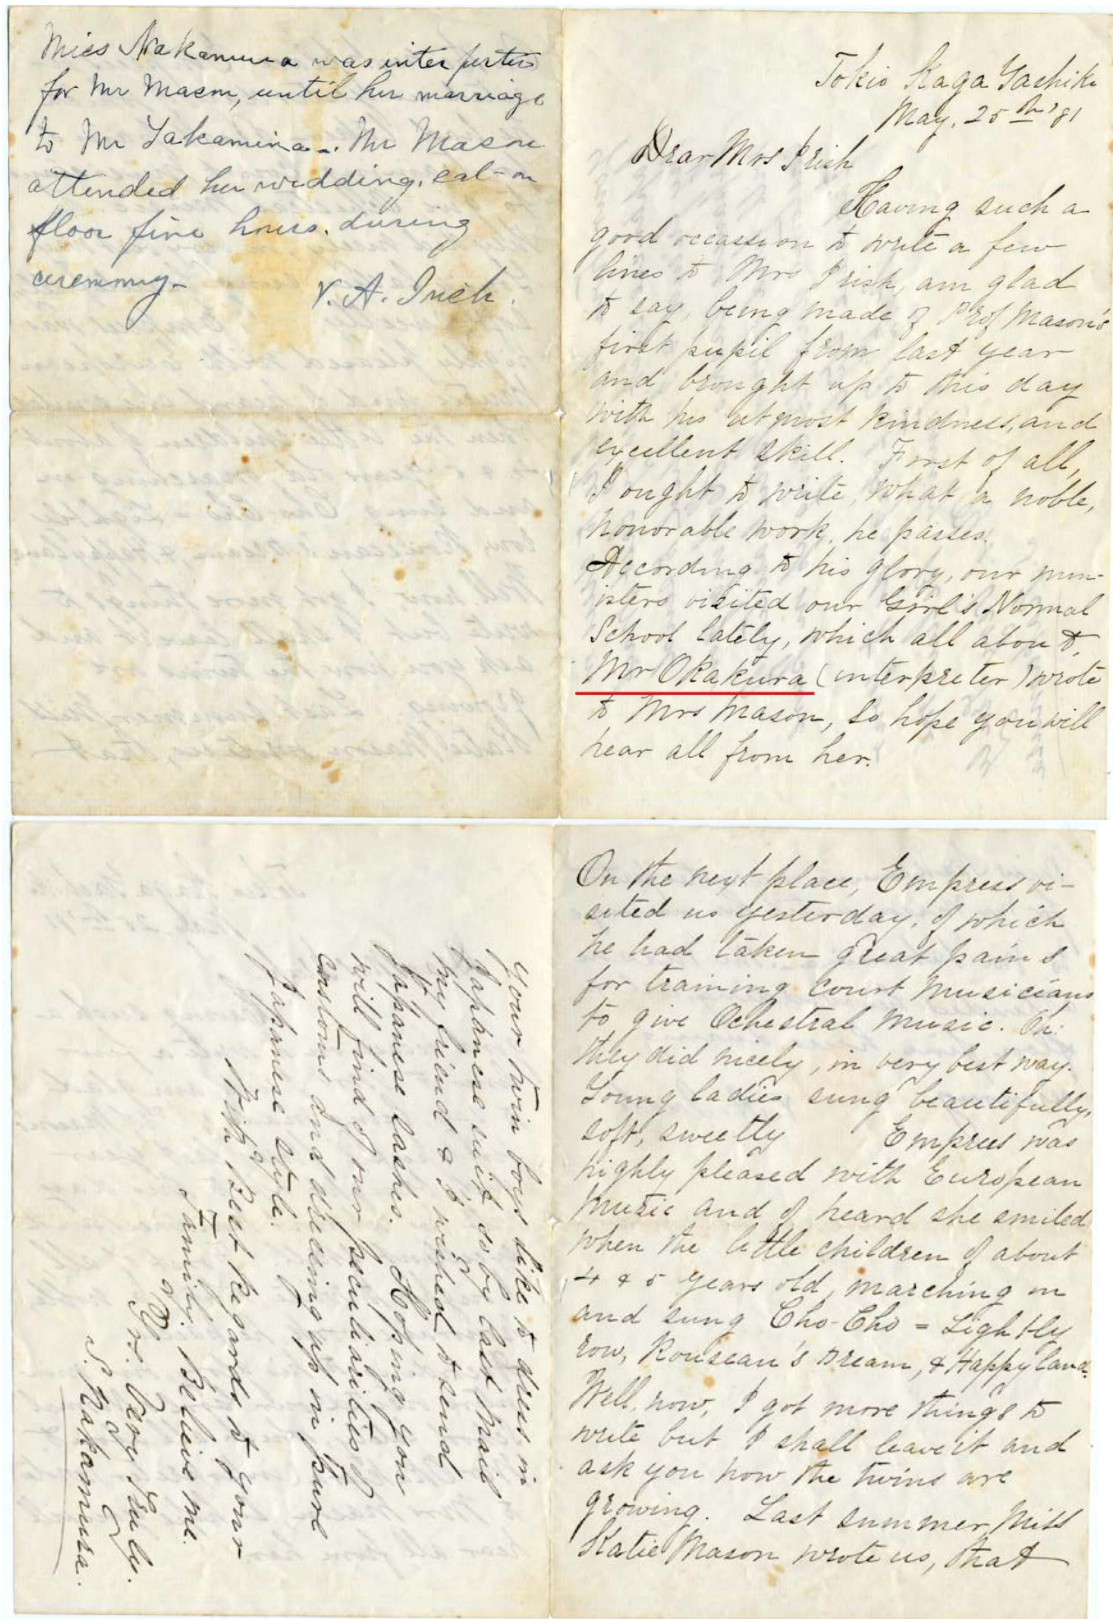 Miss Nakamura was interperter
for Mr Mason, until her marriage
to Mr Takamina. Mr Mason
attended her wedding, eat on
floor five hours. during
ceremony.
V. A. Inch.
Tokio Kaga Yashiki
May, 25th '81
Dear Mrs
Having such a
good occassion to write a few
lines to Mrs am glad
to say, being made of Prof Mason's
first pupil from last year
and brought up to this day
with his utmost kindness, and
excellent skill. First of all,
I ought to write, what a noble,
honorable work, he passes.
According to his glory, our min-
isters visited our Girl's Normal
School lately, which all about
Mr Okakura (interpreter) wrote
to Mrs Mason, so hope you will
hear all from her.
On the next place, Empress vi-
sited us yesterday, of which
he had taken great pains
for training court musicians
to give Ochestral music. Oh:
they did nicely, in very best way.
Young ladies sung beautifully,
soft, sweetly Empress was
highly pleased with European
music and I heard she smiled
when the little children of about
4 & 5 years old, marching on
and sung Cho-Cho = Lightly
row, Rousean's Dream, & Happy land.
Well, now, I got more things to
write but I shall leave it and
ask you how the twins are
growing. Last summer Miss
Katie Mason wrote us, that
your twin boys like to dress in
Japanese suit so by last mail
my friend & I wished to send
Japanese sashes. Hoping you
will find of our peculiarities of
customs and dressing up in pure
Japanese style.
With Best Regards to your
Family. Believe me.
Yr. Very Truly.
S. Nakamura.